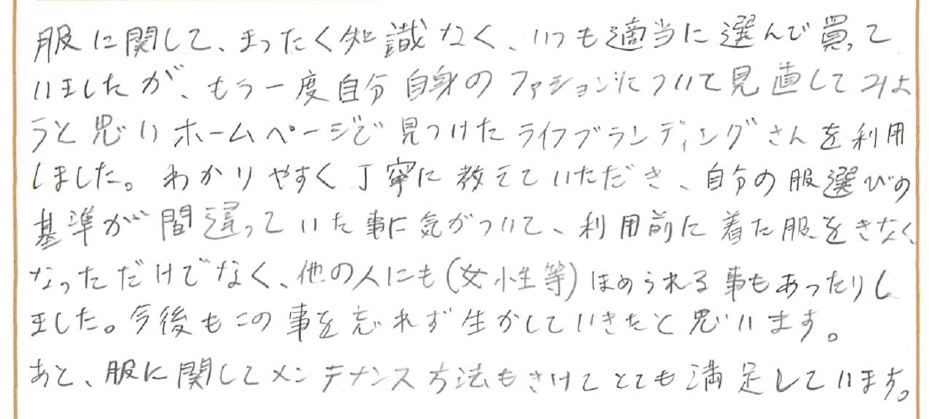 服に関して、まったく知識なく、いつも適当に選んで買って
いましたが、もう一度自分自身のファションについて見直してみよ
うと思いホームページで見つけたライフブランディングさんを利用
しました。わかりやすく丁寧に教えていただき、自分の服選びの
基準が間違っていた事に気がついて、利用前に着た服をきなく
なっただけでなく、他の人にも(女性等)ほめられる事もあったりし
ました。今後もこの事を忘れず生かしていきたと思います。
あと、服に関してメンテナンス方法もきけてとても満足しています。